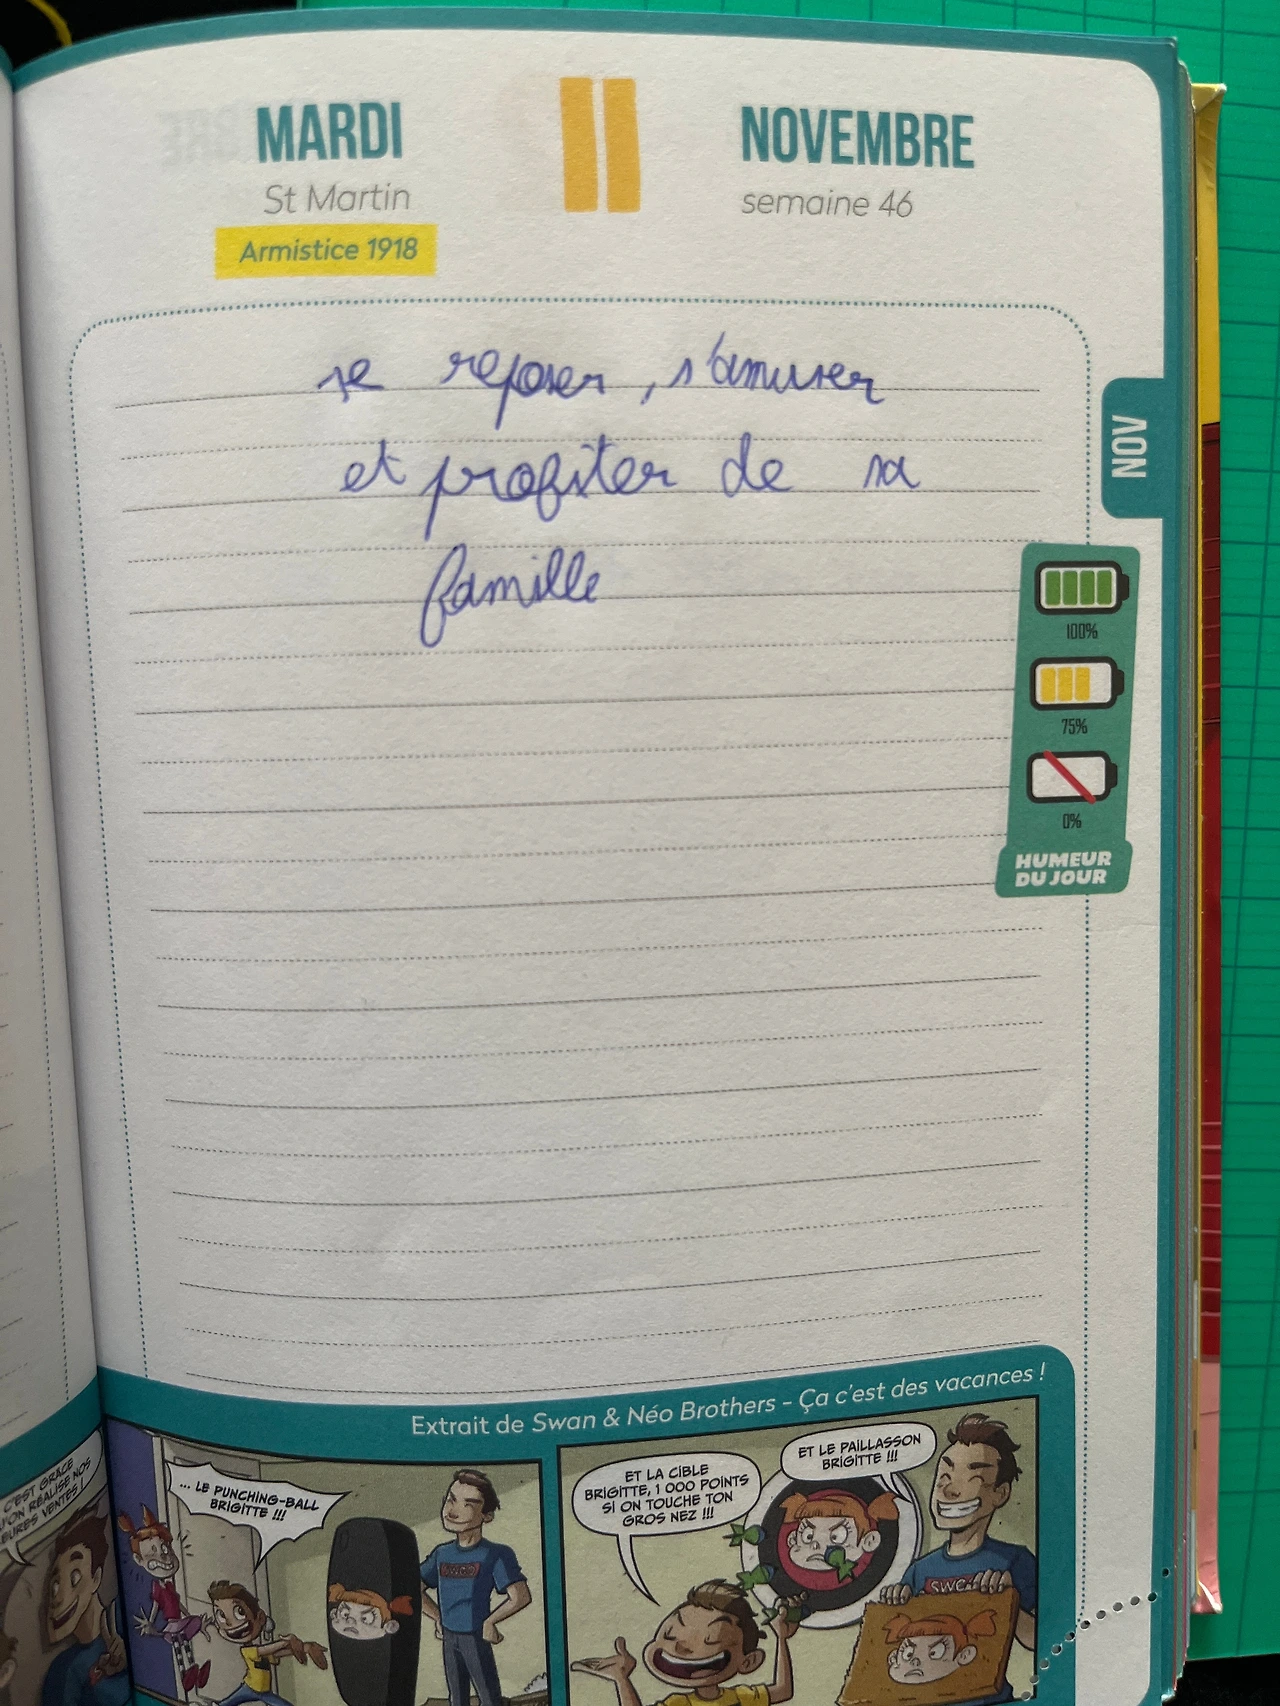 MARDI
11
NOVEMBRE
St Martin
semaine 46
Armistice 1918
se reposer, s'amuser
et profiter de sa
famille
NOV
100%
75%
0%
HUMEUR
DU JOUR
Extrait de Swan & Néo Brothers - Ça c'est des vacances !
C'EST GRÂCE
RÉALISE NOS
VENTES !
... LE PUNCHING-BALL
BRIGITTE !!!
SWAN
ET LA CIBLE
BRIGITTE, 1 000 POINTS
SI ON TOUCHE TON
GROS NEZ !!!
ET LE PAILLASSON
BRIGITTE !!!